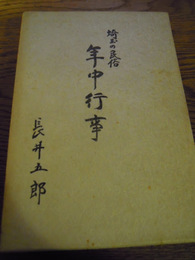 埼玉の民俗
年中行事
長井五郎